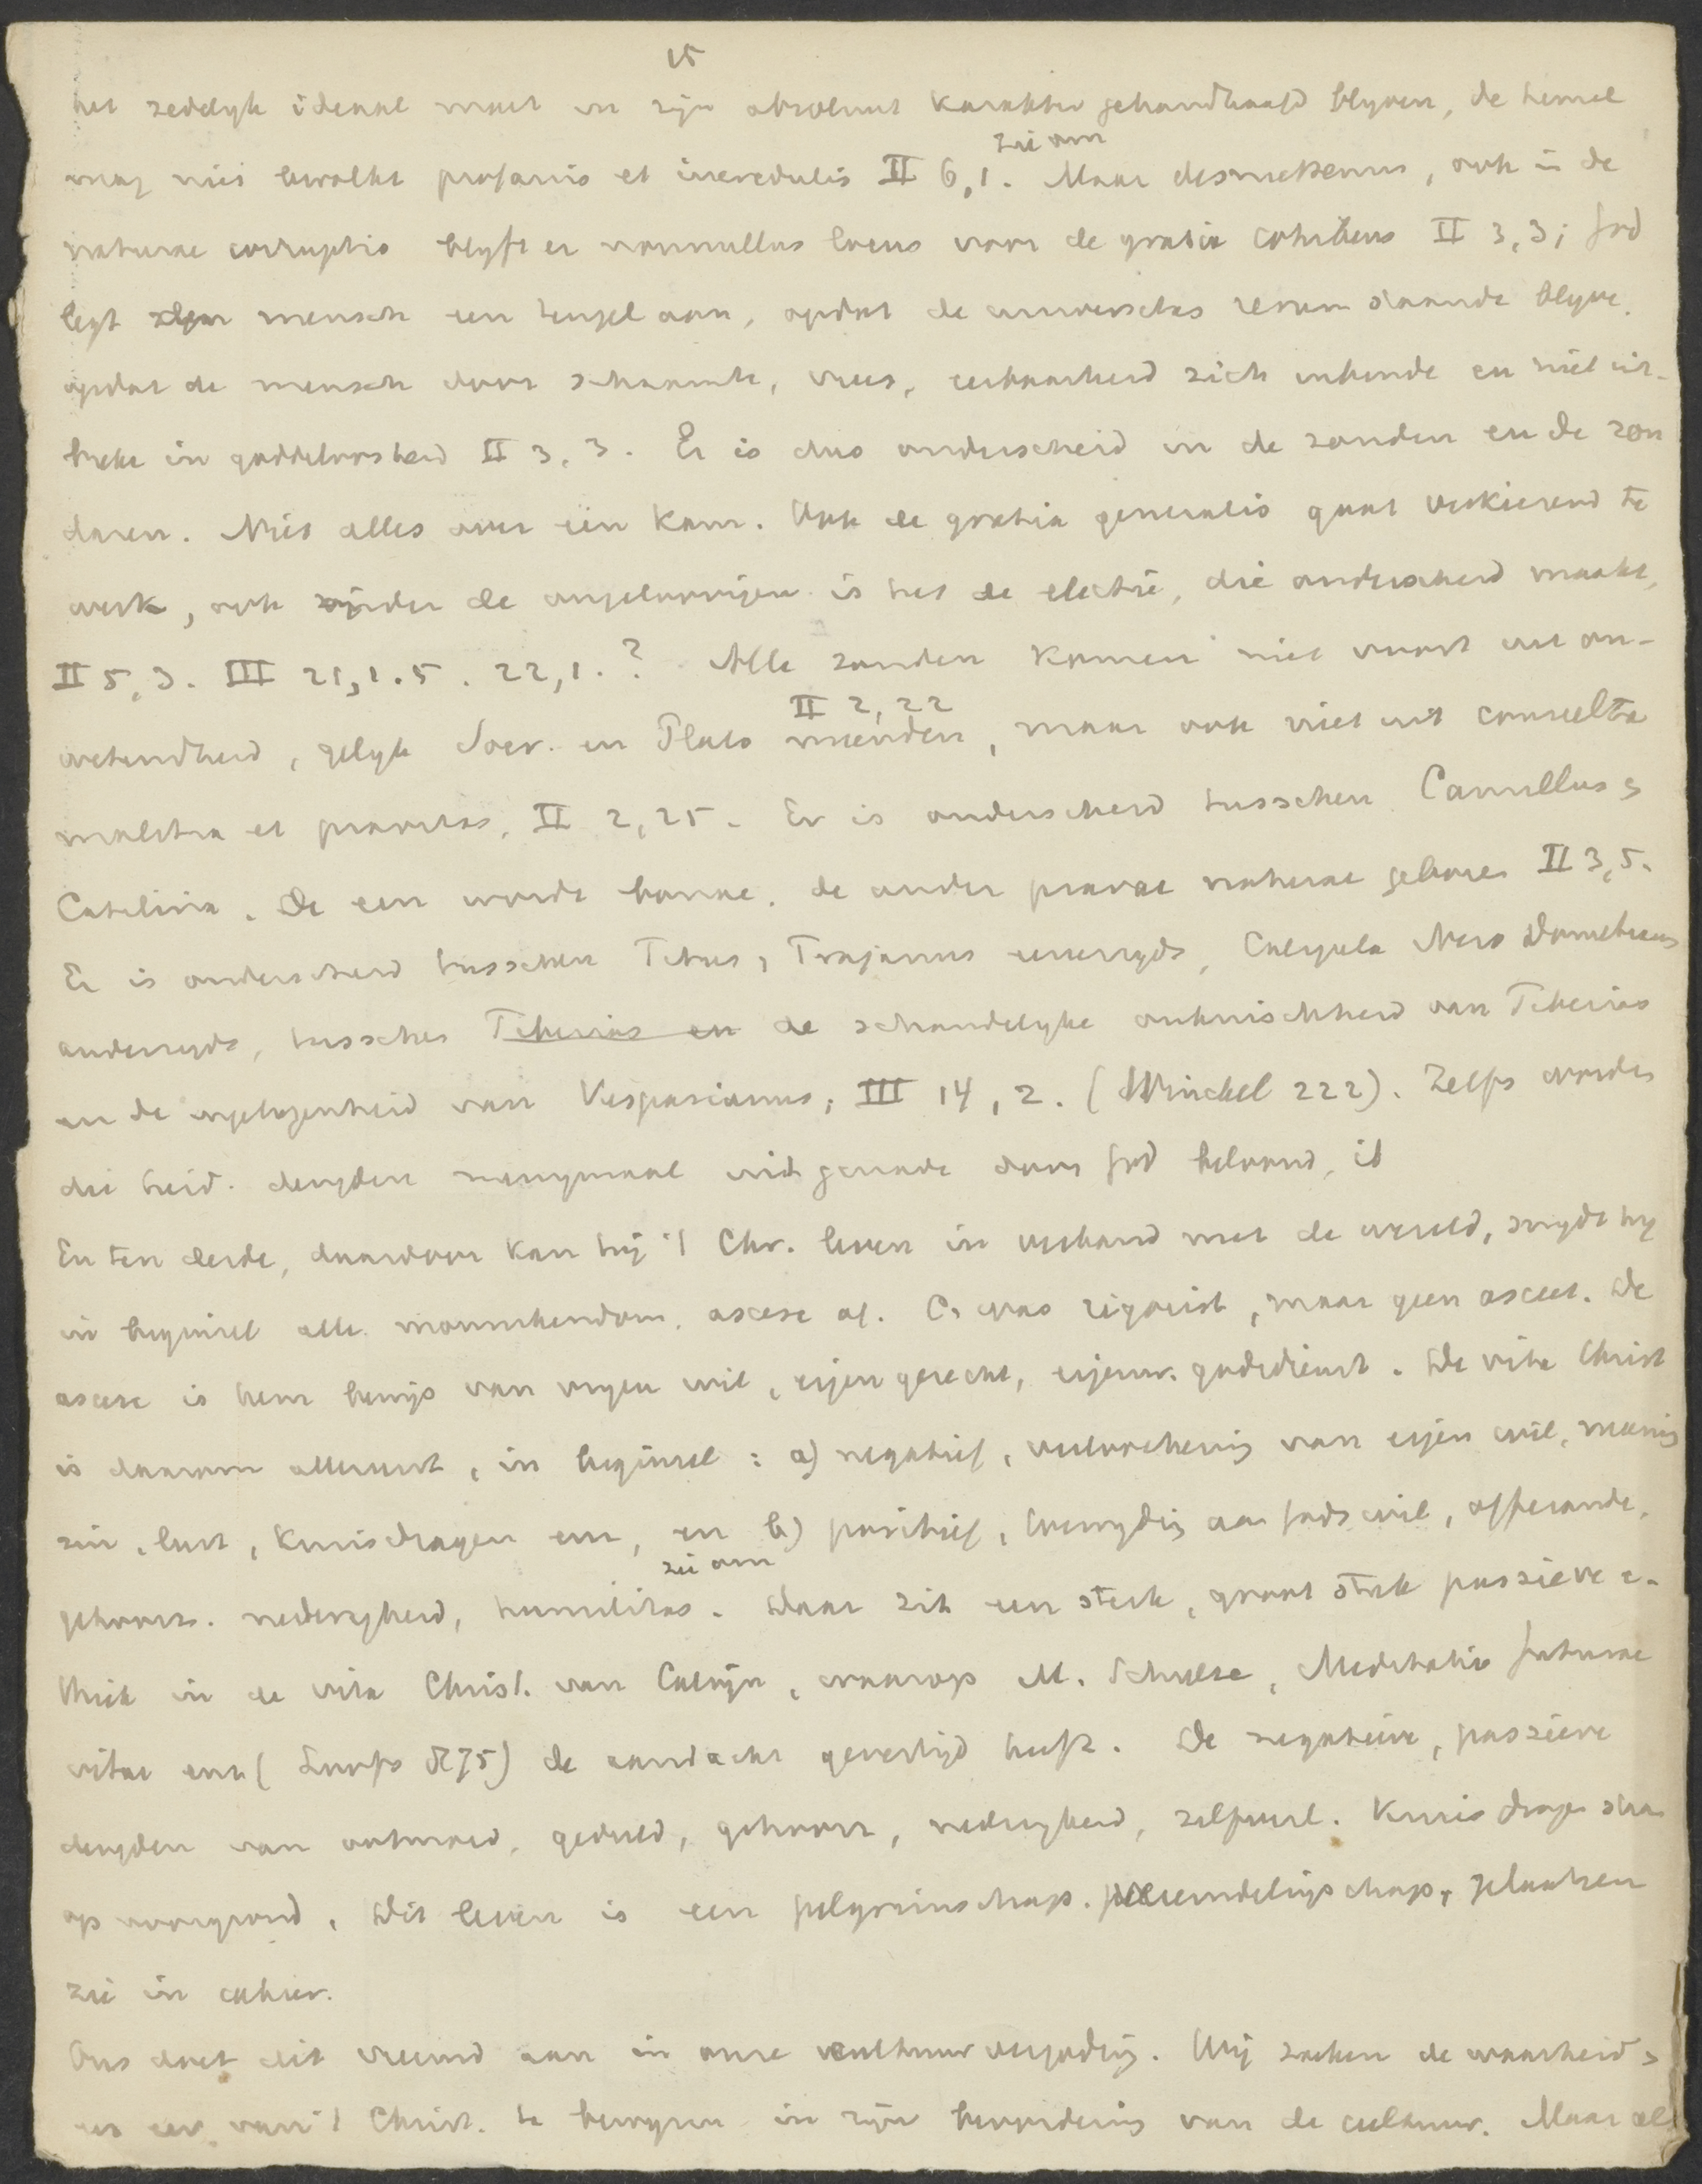 15
het zedelyk ideaal moet in zijn absoluut karakter gehandhaafd blyven, de hemel
zie om
mag niet bevolkt profanis et incredulis II 6,1. Maar desniettemin, ook in de
naturae corruptio blyft er nonnullus locus voor de gratia cohibens II 3,3; God
legt den mensch een teugel aan, opdat de universitas rerum staande blyve,
opdat de mensch door schaamte, vrees, eerbaarheid zich inhoude en niet uit-
breke in goddeloosheid II 3,3. Er is dus onderscheid in de zonden en de zon
daren. Niet alles over één kam. Ook de gratia generalis gaat verkiezend te
werk, ook onder de ongeloovigen is het de electie, die onderscheid maakt,
II 5,3. III 21,1.5. 22,1.? Alle zonden komen niet voort uit on-
II 2,22
wetendheid, gelyk Socr. en Plato meenden, maar ook niet uit consulta
malitia et pravitas, II 2,25. Er is onderscheid tusschen Camillus en
Catilina. De een wordt bonae, de ander pravae naturae geboren II 3,5.
Er is onderscheid tusschen Titus, Trajanus eenerzyds, Caligula Nero Domitianus
anderzyds, tusschen Tiberius en de schandelyke onkuischheid van Tiberius
en de ingetogenheid van Vespasianus; III 14,2. (Winckel 222). Zelfs worden
die heid. deugden menigmaal uit genade door God beloond, ib
En ten derde, daardoor kan hij 't Chr. leven in verband met de wereld, snydt hy
in beginsel alle monnikendom, ascese af. C. was rigorist, maar geen asceet. De
ascese is hem bewijs van eigen wil, eigen gerecht, eigenw. godsdienst. De vita Christ
is daarom allereerst, in beginsel: a) negatief, verloochening van eigen wil, meening
zin, lust, kruisdragen enz, en b) positief, toewyding aan Gods wil, offerande,
zie om
gehoorz. nederigheid, humilitas. Daar zit een sterk, groot stuk passieve e-
thiek in de vita Christ. van Calvijn, waarop M. Schulze, Meditatio futurae
vitae enz ( ) de aandacht gevestigd heeft. De negatieve, passieve
deugden van ootmoed, geduld, gehoorz, nederigheid, zelfverl. Kruis dragen staan
op voorgrond. Dit leven is een pelgrimschap. vreemdelingschap, plaatsen
zie in cahier.
Ons doet dit vreemd aan in onze cultuurvergoding. Wij zoeken de waarheid en
en eer van 't Christ. te bewyzen in zijn bevordering van de cultuur. Maar al